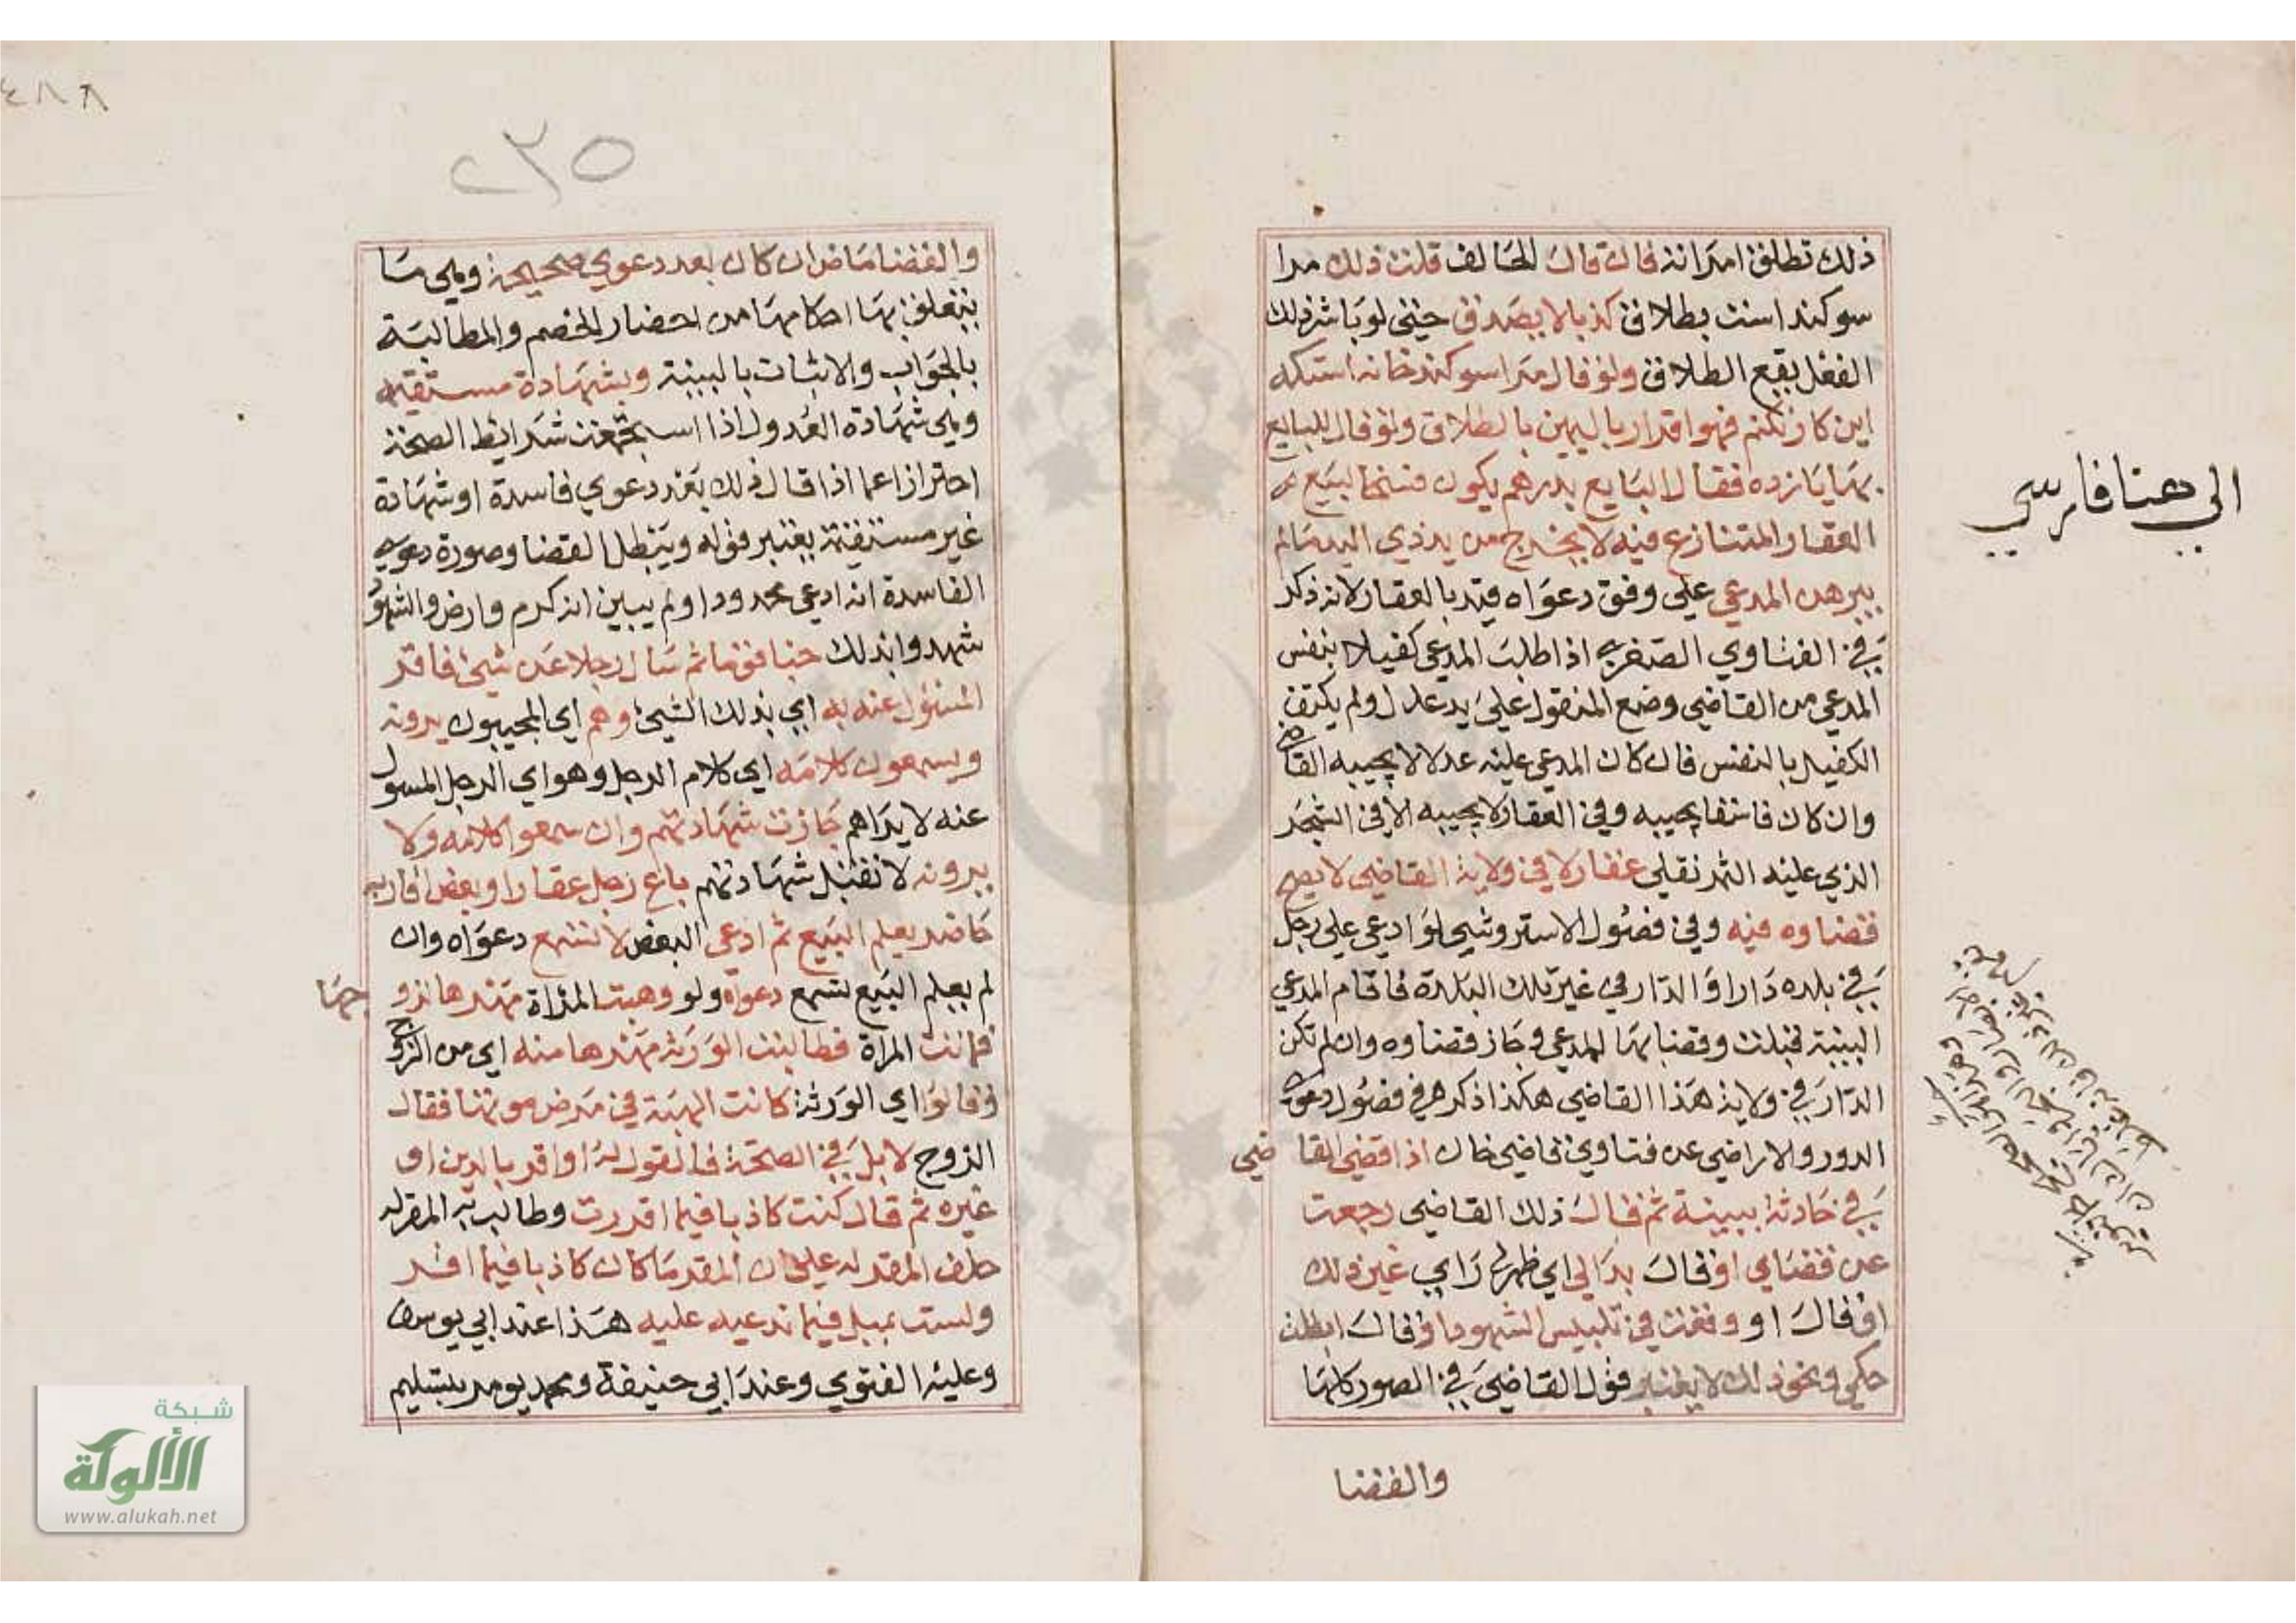 ذلك تطلق امراته فان قال الحالف قلت ذلك مرا
سوكند است بطلاق كذبا لا يصدق حتي لو باشر ذلك
الفعل يقع الطلاق ولو قال مرا سوكند خانه استكه
اين كار نكنم فهو اقرار باليمين بالطلاق ولو قال للبايع
بها يازده فقال البايع بدهم يكون فسخا لبيع
العقار المتنازع فيه لا يخرج من يد ذي اليد مالم
يبرهن المدعي علي وفق دعواه قيد بالعقار لانه ذكر
في الفتاوي الصغري اذا طلب المدعي كفيلا بنفس
المدعي من القاضي وضع المنقول علي يد عدل ولم يكتف
الكفيل بالنفس فان كان المدعي عليه عدلا لا يجيبه القاضي
وان كان فاسقا يجيبه وفي العقار لا يجيبه الا في الشجر
الذي عليه الثمر نقلي عقار لا في ولاية القاضي لا يصح
قضاوه فيه وفي فصول الاستروشني لو ادعي علي رجل
في بلده دارا والدار في غير تلك البلدة فاقام المدعي
البينة قبلت وقضا بها للمدعي وجاز قضاوه وان لم تكن
الدار في ولاية هذا القاضي هكذا ذكر في فصول دعوي
الدور والاراضي عن فتاوي قاضي خان اذا قضي القاضي
في حادثة ببينة ثم قال ذلك القاضي رجعت
عن قضاي او قال بدا لي اي ظهر لي راي غير ذلك
او قال او وقفت في تلبيس الشهود او قال ابطلت
حكمي ونحو ذلك لا يعتبر قول القاضي في الصور كلها
والقضا
الي هنا فارسي
٢٣٥
٤٨٨
والقضا ماض ان كان بعد دعوي صحيحة وهي ما
يتعلق بها احكامها من احضار الخصم والمطالبة
بالجواب والاثبات بالبينة وبشهادة مستقيمة
وهي شهادة العدول اذا استجمعت شرايط الصحة
احترازا عما اذا قال ذلك بعد دعوي فاسدة او شهادة
غير مستقيمة يعتبر قوله ويبطل القضا وصورة دعوي
الفاسدة انه ادعي محدودا ولم يبين انه كرم وارض والشهود
شهدوا بذلك خبا قوما ثم سال رجلا عن شيئ فاقر
المسئول عنه به اي بذلك الشيئ وهم اي المجيبون يرونه
ويسمعون كلامه اي كلام الرجل وهو اي الرجل المسول
عنه لا يراهم جازت شهادتهم وان سمعوا كلامه ولا
يرونه لا تقبل شهادتهم باع رجل عقارا وبعض اقاربه
حاضر يعلم البيع ثم ادعي البعض لا تسمع دعواه وان
لم يعلم البيع تسمع دعواه ولو وهبت المراة مهرها لزو جها
فماتت المراة فطالبت الورثة مهرها منه اي من الزوج
وقالوا اي الورثة كانت الهبة في مرض موتها فقال
الزوج لا بل في الصحة فالقول له او اقر بالدين او
غيره ثم قال كنت كاذبا فيما اقررت وطالب به المقر له
حلف المقر له علي ان المقر ما كان كاذبا فيما اقر
ولست بمبطل فيما تدعيه عليه هذا عند ابي يوسف
وعليه الفتوي وعند ابي حنيفة ومحمد يومر بتسليم
شبكة
الألوكة
www.alukah.net